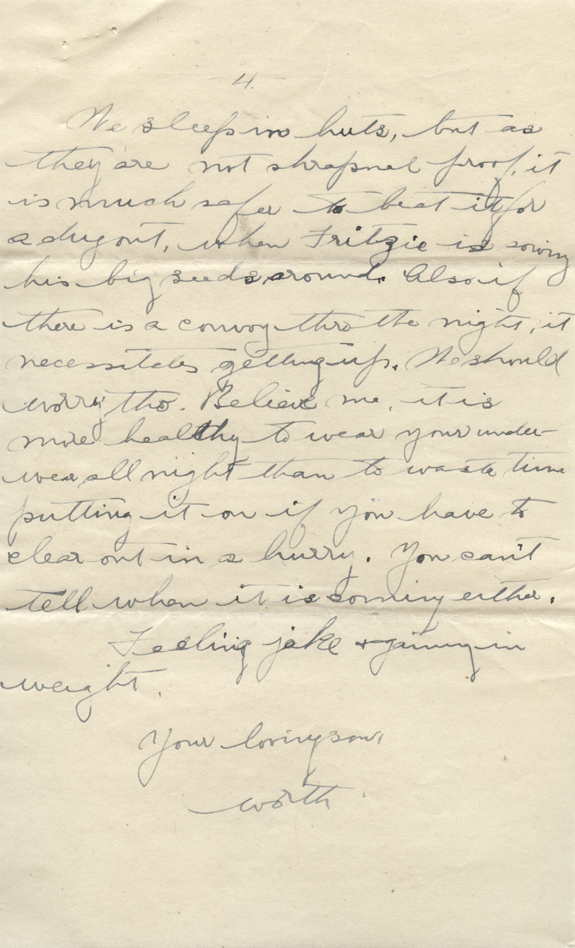 4.
We sleep in huts, but as
they are not shrapnel proof, it
is much safer to beat it for
a dugout, when Fritzie is sowing
his big seeds around. Also if
there is a convoy thro the night, it
necessitates getting up. We should
worry tho. Believe me, it is
more healthy to wear your under-
wear all night than to waste time
putting it on if you have to
clear out in a hurry. You can't
tell when it is coming either.
Feeling jake + gaining in
weight.
Your loving son,
Worth